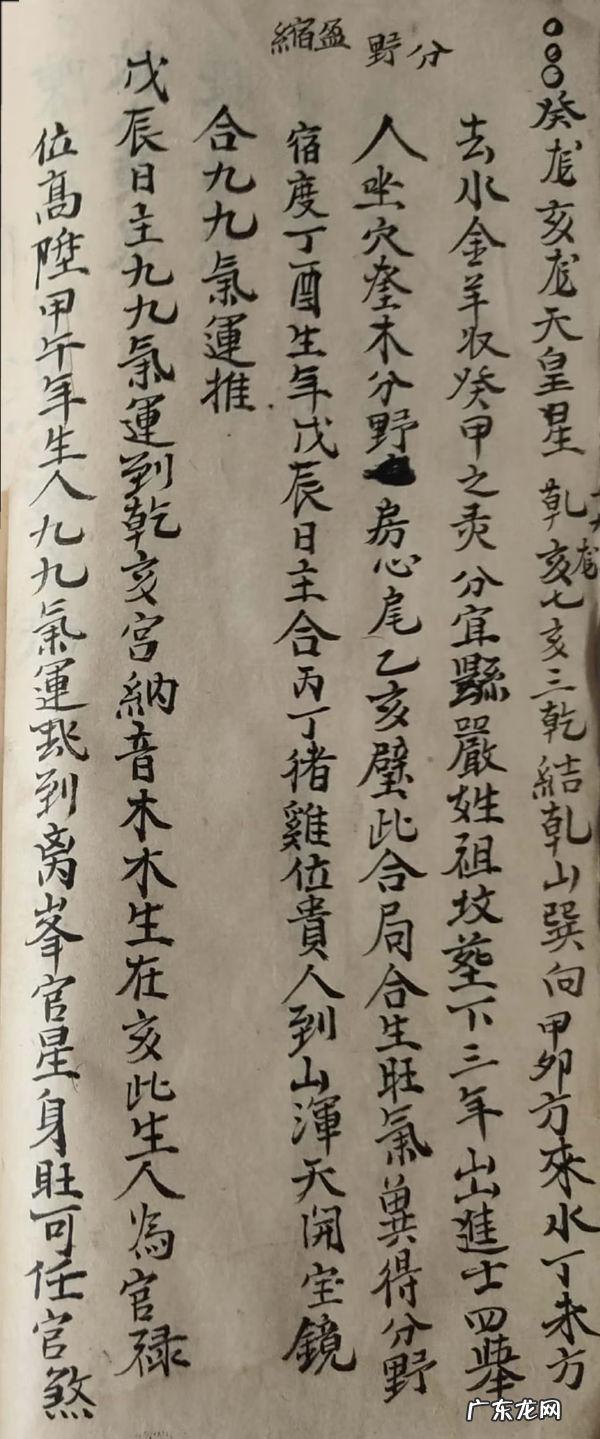 分野 盈縮
○○○癸龙亥龙天皇星 乹亥七亥三乾結乹山巽向甲卯方來水丁未方
去水金羊收癸甲之灵 分宜縣嚴姓祖坟塟下三年出進士四舉
人坐穴奎木分野 房心尾乙亥璧此合局合生旺氣兼得分野
宿度丁酉生年戊辰日主合丙丁猪雞位貴人到山渾天開宝鏡
合九九氣運推
戊辰日主九九氣運到乾亥宮納音木木生在亥此生人為官禄
位髙陞甲午年生人九九氣運到离峯官星身旺可任官煞
广东龙网